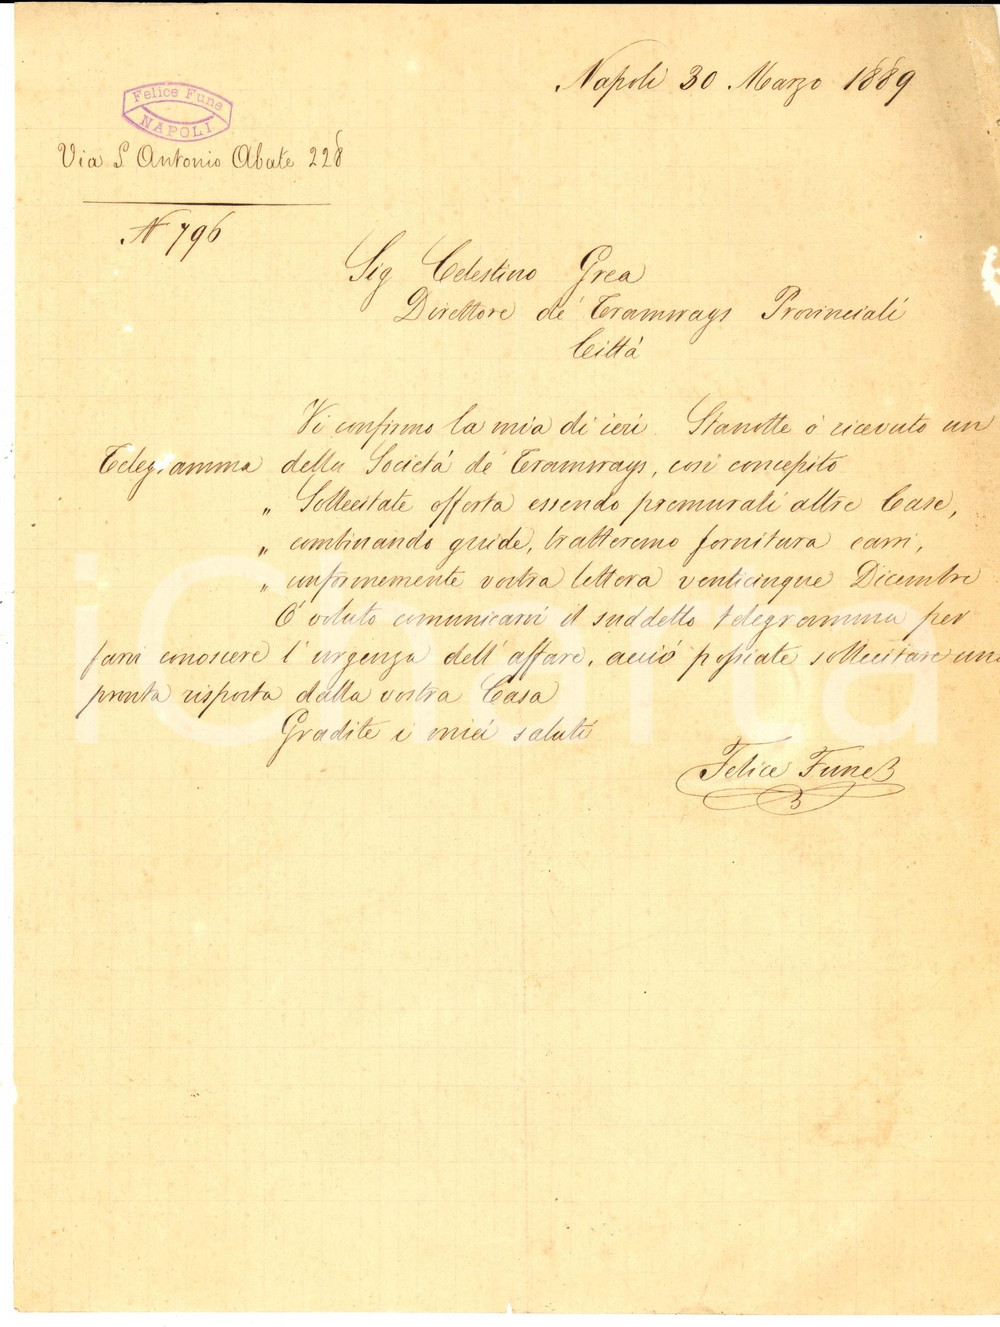 Napoli 30 Marzo 1889
Felice Fune
NAPOLI
Via S Antonio Abate 228
N 796
Sig Celestino Grea
Direttore dé Tramways Provinciali
Città
Vi confirmo la mia di ieri. Stanotte ó ricevuto un
Telegramma della Societá dé Tramways, cosi concepito
" Sollecitate offerta essendo premurali altre Case,
" combinando guide, tratteremo fornitura carri,
" conformemente vostra lettera venticinque Dicembre
Ó voluto comunicarvi il suddetto telegramma per
farvi conoscere l'urgenza dell'affare, acció possiate sollecitare una
pronta risposta dalla vostra Casa
Gradite i miei saluti
Felice Fune
iCharta